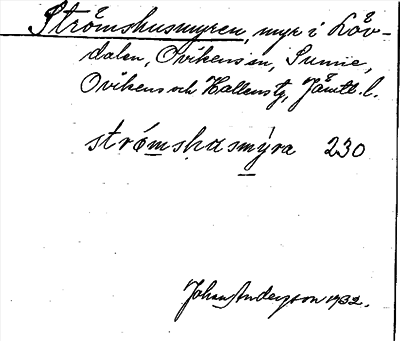 Strömshusmyren, myr i Löv-
dalen, Ovikens sn, Sunne,
Ovikens och Hallens tg, Jämtl. l.
strómshusmýra 230
Johan Anderson 1932.